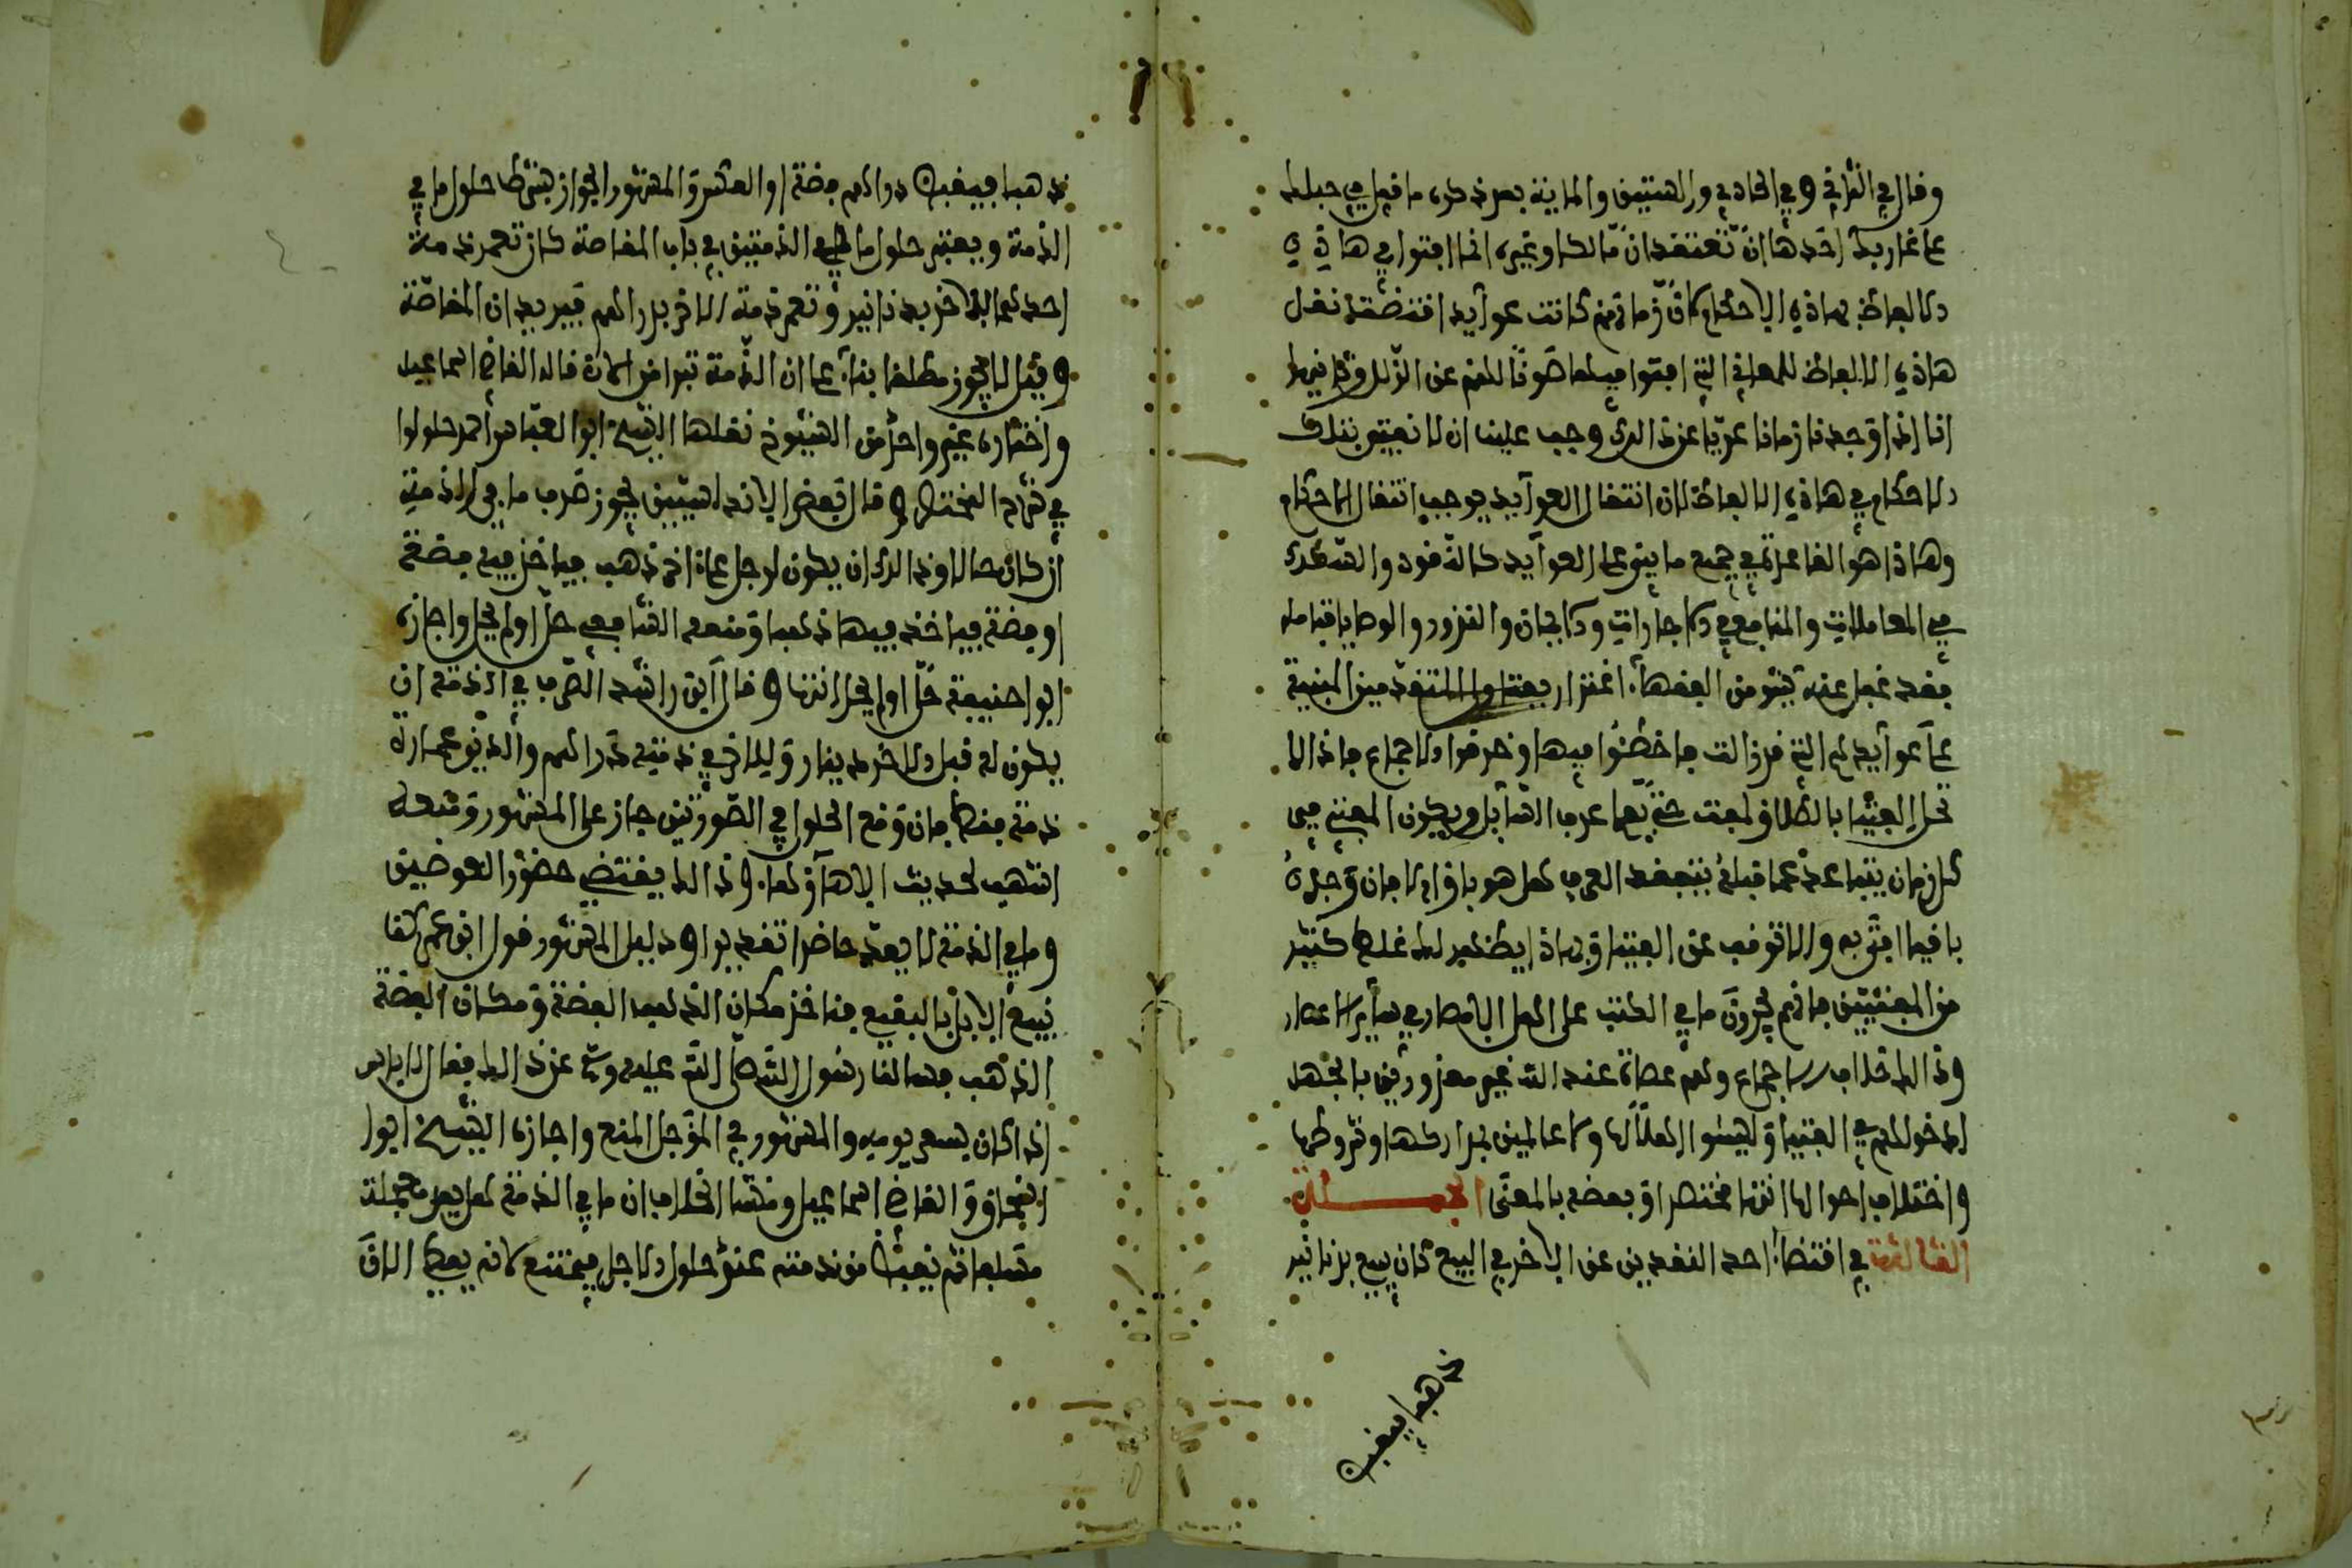 وقال القرافي في الحادي والستين والماية بعد ذكره ما قيل في حبلك
على غاربك احدها ان تعتقد ان مالكا وغيره انما افتوا في هاذه
الالفاظ بهاذه الاحكام لان زمانهم كانت عوايده اقتضت نقل
هاذه الالفاظ للمعاني التي افتوا فيها صونا لهم عن الزلل وثانيها
انا اذا وجدنا زماننا عريا عن ذالك وجب علينا ان لا نفتي بتلك
الاحكام في هاذه الالفاظ لان انتقال العوايد يوجب انتقال الاحكام
وهاذا هو القاعدة في جميع ما بني على العوايد كالنقود والسكك
في المعاملات والمنافع في الاجارات والايمان والنذور والوصايا فتامله
فقد غفل عنه كثير من الفقهاء اغتزار بفتاوا المتقدمين المبنية
على عوايدهم التي قد زالت فاخطئوا فيها وخرقوا الاجماع فاذا لا
تحل الفتيا بالطلاق لمفت حتى يعلم عرف السايل ويكون المفتي في
كل زمان يتباعد عما قبله يتفقد العرف هل هو باق ام لا فان وجده
باقيا افتى به والا توقف عن الفتيا وبهاذا يظهر لك غلط كثير
من المفتيين فانهم يجرون ما في الكتب على اهل الامصار في ساير الاعصار
وذالك خلاف الاجماع وهم عصاة عند الله غير معذورين بالجهل
لدخولهم في الفتيا وليسوا اهلا لها ولا عالمين بمداركها وشروطها
واختلاف احوالها انتها مختصرا وبعضه بالمعنى الجملة
الثالثة في اقتضاء احد النقدين عن الاخر في البيع كان يبيع بدنانير
ذهبا فيقبض
ذهبا فيقبض دراهم فضة او العكس والمشهور الجواز بشرط حلول ما في
الذمة ويعتبر حلول ما في الذمتين في باب المقاصة كان تعمر ذمة
احدهما للاخر بدنانير وتعمر ذمة الاخر بدراهم فيريدان المقاصة
وقيل لا يجوز مطلقا بناء على ان الذمة تبرا من الان قاله القاضي اسماعيل
واختاره غير واحد من الشيوخ نقلها الشيخ ابو العباس احمد حلولوا
في شرح المختصر وقال بعض الاندلسيين يجوز صرف ما في الذمة
ان كان حالا وذالك ان يكون لرجل على اخر ذهب فياخذ فيه فضة
او فضة فياخذ فيها ذهبا ومنعه الشافعي حل او لم يحل واجازه
ابو حنيفة حل او لم يحل انتها وقال ابن راشد الصرف في الذمة ان
يكون له قبل الاخر دينار وللاخر في ذمته دراهم والدين عمارة
ذمة فقط فان وقع الحلول في الصورتين جاز على المشهور ومنعه
اشهب لحديث الا هآ وهآ وذالك يقتضي حضور العوضين
وما في الذمة لا يعد حاضرا تقديرا ودليل المشهور قول ابن عمر كنا
نبيع الابل بالبقيع فناخذ مكان الذهب الفضة ومكان الفضة
الذهب فسالنا رسول الله صلى الله عليه وسلم عن ذالك فقال لا باس
اذا كان بسعر يوميه والمشهور في المؤجل المنع واجازه الشيخ ابو
اسحاق والقاضي اسماعيل ومنشا الخلاف ان ما في الذمة هل يعد